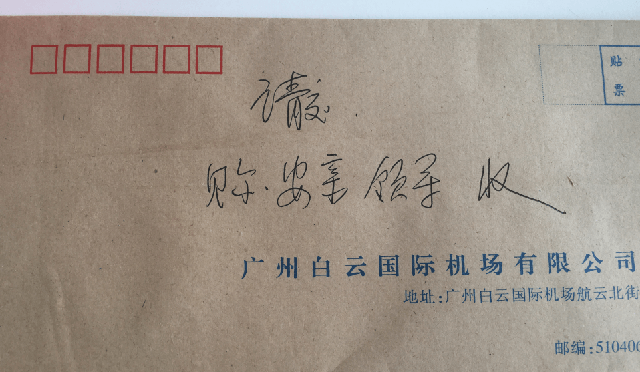 贴
票
请交
收
广州白云国际机场有限公司
地址:广州白云国际机场航云北街
邮编:510406